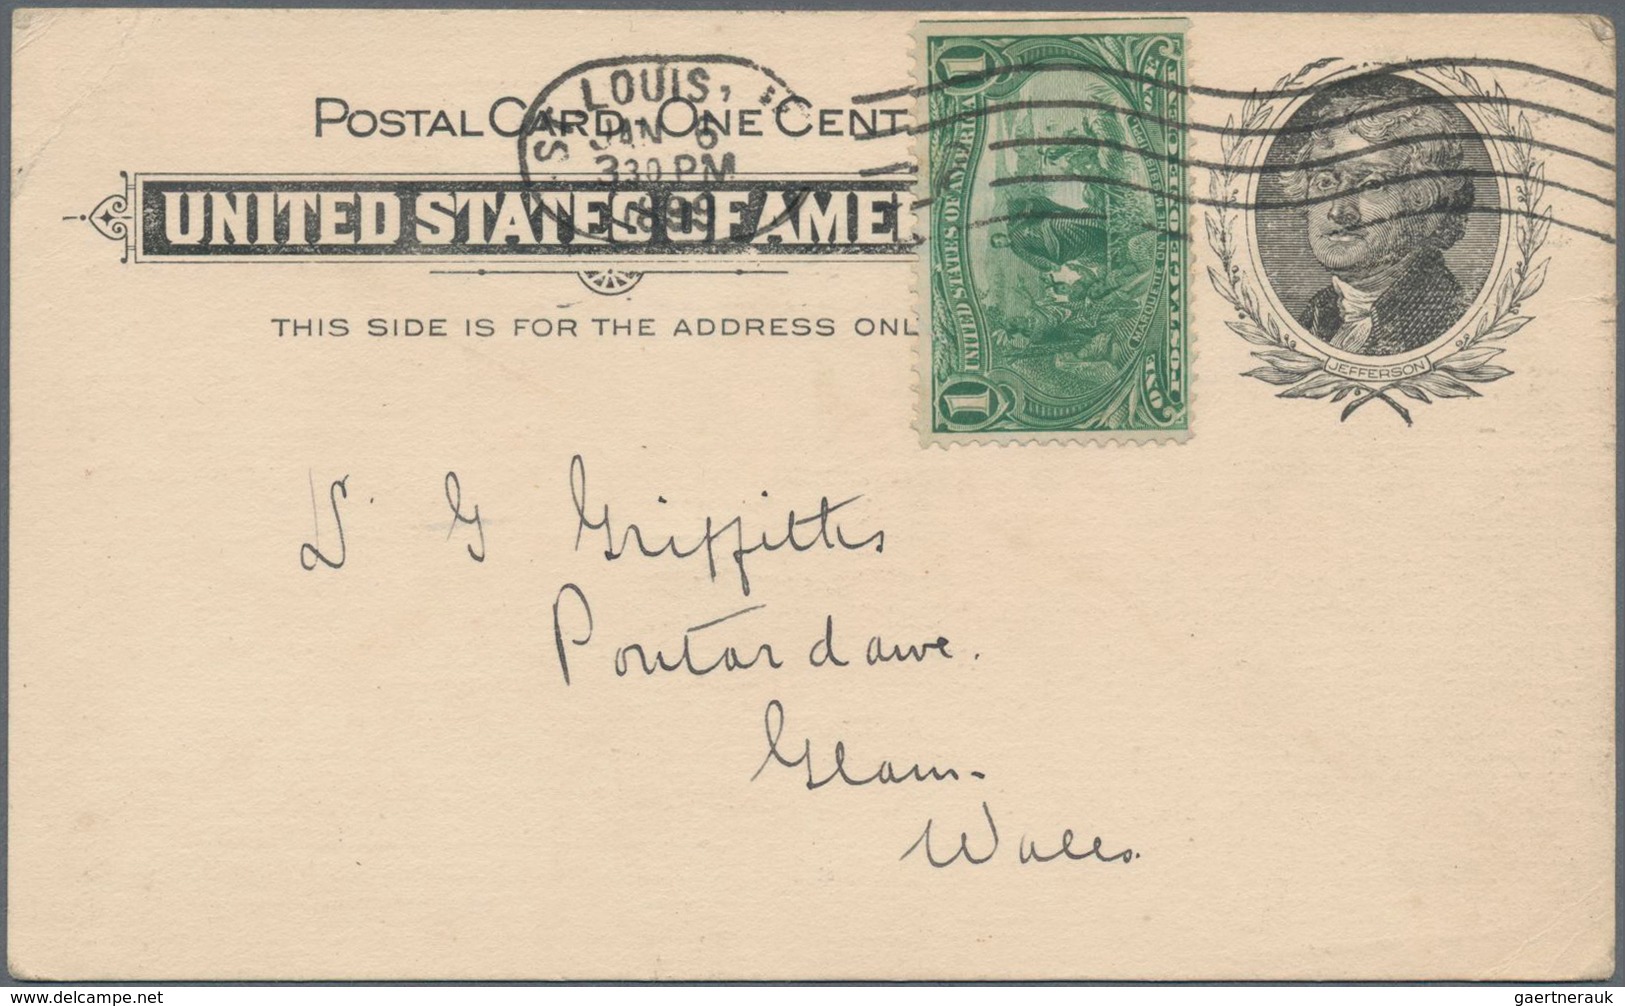 POSTAL CARD, ONE CENT.
ST. LOUIS,
JAN 6
330 PM
1899
UNITED STATES OF AMER
THIS SIDE IS FOR THE ADDRESS ONL
1
UNITED STATES OF AMERICA
1
MARQUETTE ON
POSTAGE
ONE
JEFFERSON
D. G Griffiths
Pontardawe.
Glam.
Wales.
delcampe.net
gaertnerauk